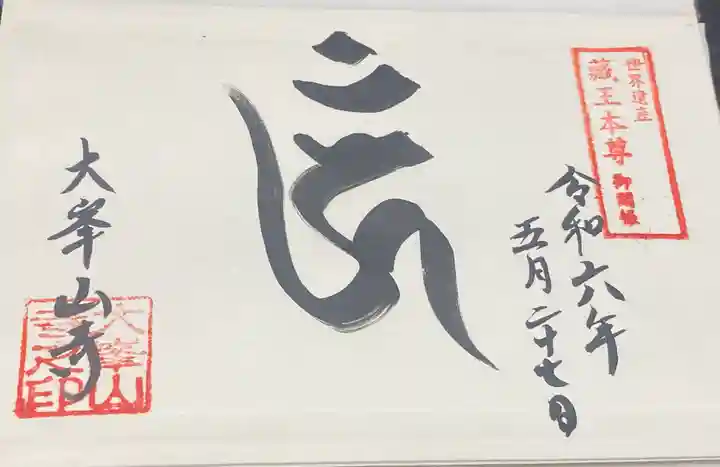 世界遺産
蔵王本尊御開帳
令和六年
五月二十七日
𑖮𑖳𑖽
大峯山寺